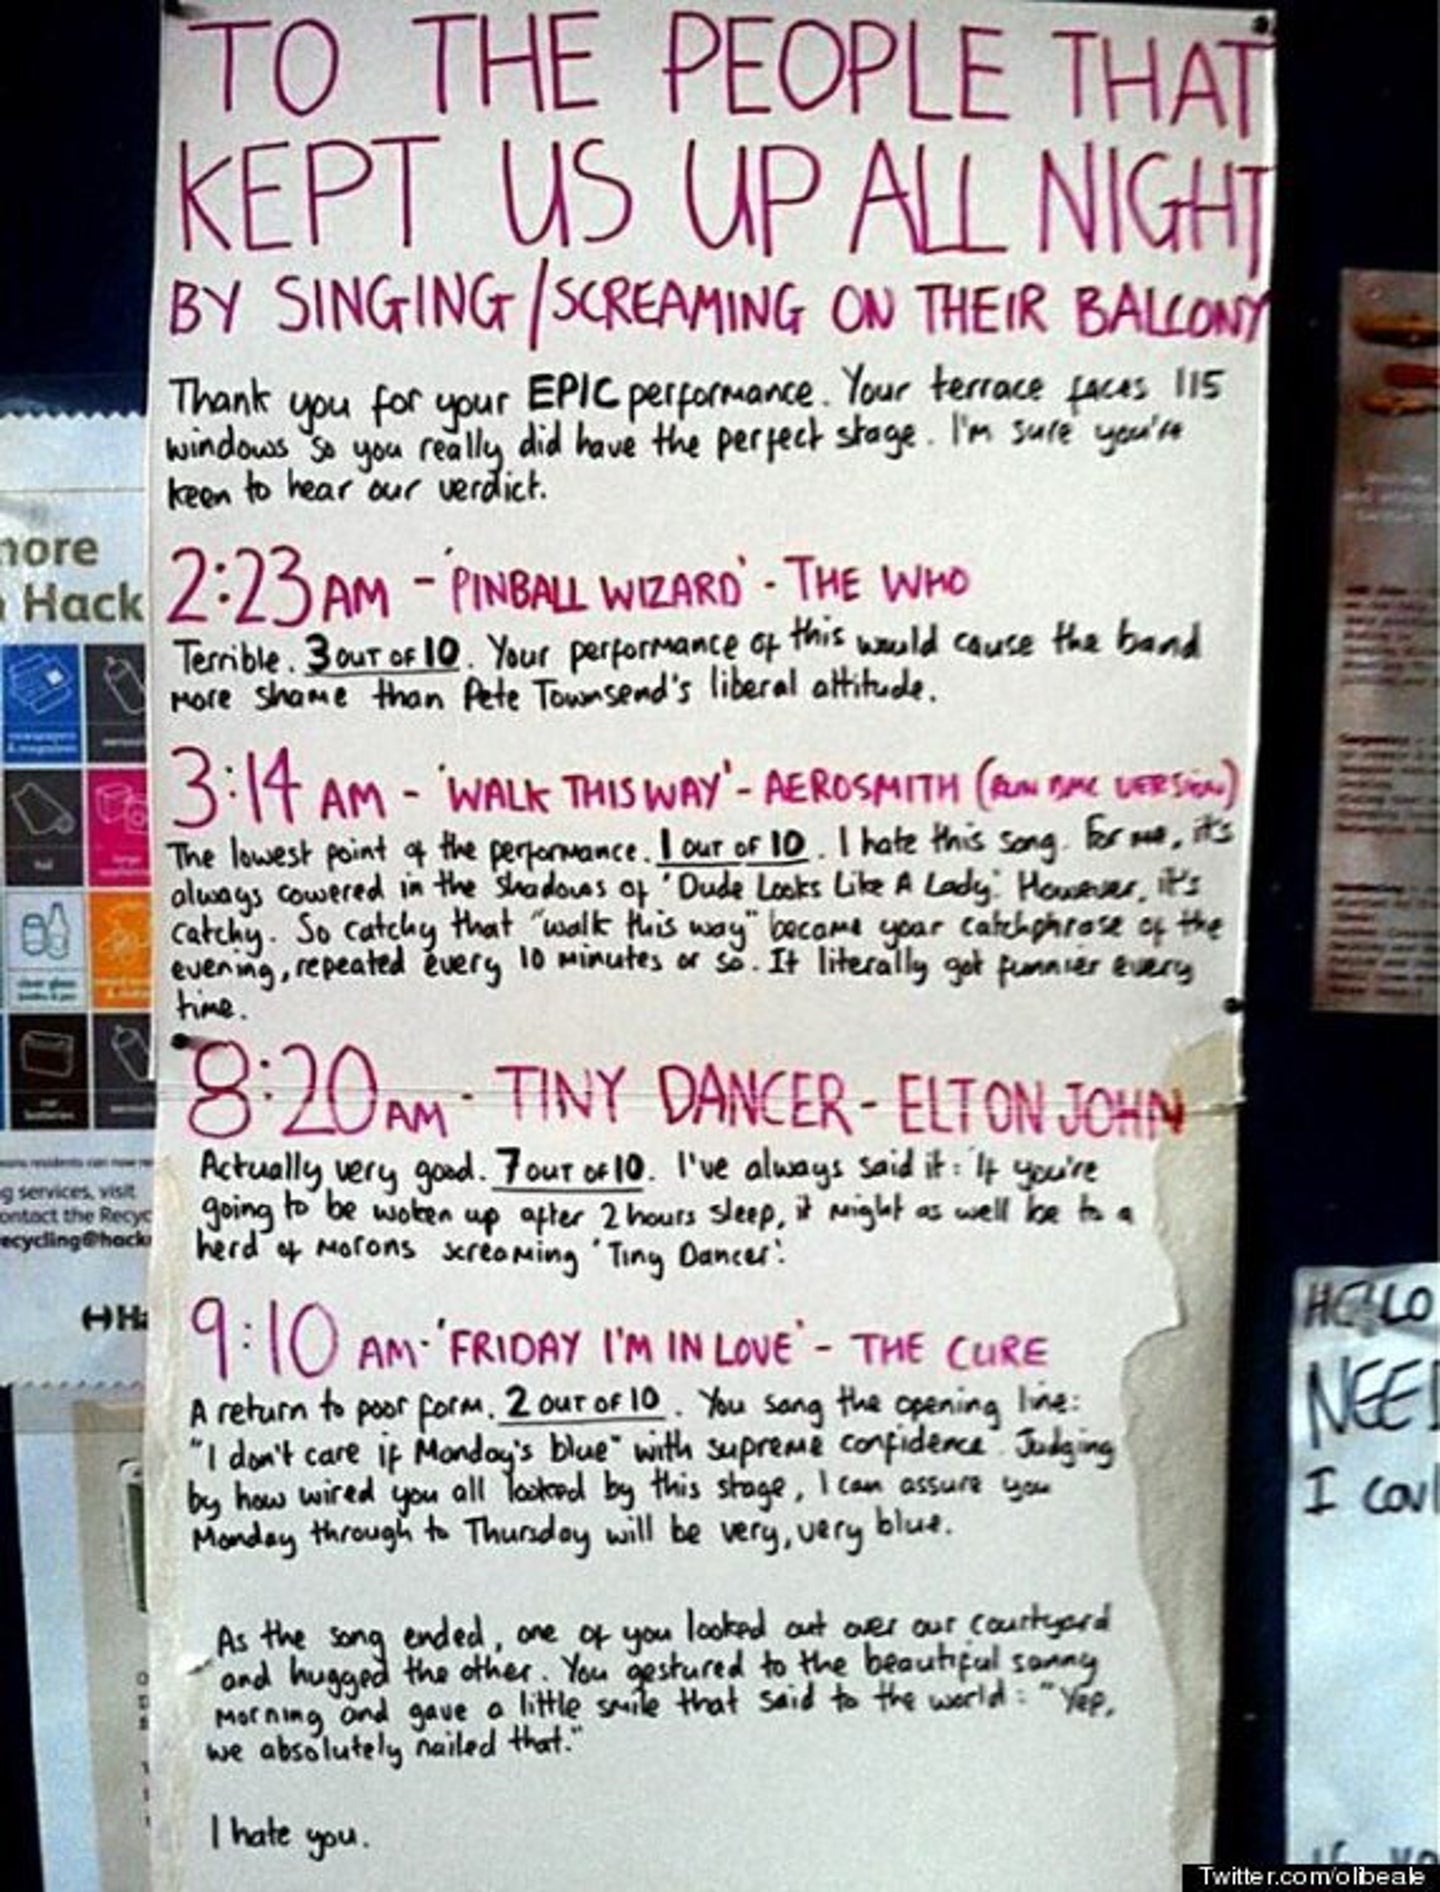 TO THE PEOPLE THAT
KEPT US UP ALL NIGHT
BY SINGING/SCREAMING ON THEIR BALCONY
Thank you for your EPIC performance. Your terrace faces 115
windows so you really did have the perfect stage. I'm sure you're
keen to hear our verdict.
2:23 AM - 'PINBALL WIZARD' - THE WHO
Terrible. 3 OUT OF 10. Your performance of this would cause the band
more shame than Pete Townsend's liberal attitude.
3:14 AM - 'WALK THIS WAY' - AEROSMITH (RUN DMC VERSION)
The lowest point of the performance. 1 OUT OF 10. I hate this song. For me, it's
always cowered in the shadows of 'Dude Looks Like A Lady'. However, it's
catchy. So catchy that "walk this way" became your catchphrase of the
evening, repeated every 10 minutes or so. It literally got funnier every
time.
8:20 AM - TINY DANCER - ELTON JOHN
Actually very good. 7 OUT OF 10. I've always said it: If you're
going to be woken up after 2 hours sleep, it might as well be to a
herd of morons screaming 'Tiny Dancer'.
9:10 AM - 'FRIDAY I'M IN LOVE' - THE CURE
A return to poor form. 2 OUT OF 10. You sang the opening line:
"I don't care if Monday's blue" with supreme confidence. Judging
by how wired you all looked by this stage, I can assure you
Monday through to Thursday will be very, very blue.
As the song ended, one of you looked out over our courtyard
and hugged the other. You gestured to the beautiful sunny
morning and gave a little smile that said to the world: "Yep,
we absolutely nailed that."
I hate you.
more
Hack
newspapers
& magazines
clear glass
car
batteries
g services, visit
ontact the Recyc
ecycling@hack
Ha
HELLO
NEED
I coul
Twitter.com/olibeale